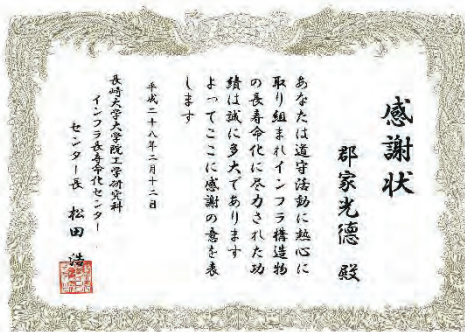 感謝状
郡家光徳 殿
あなたは道守活動に熱心に
取り組まれインフラ構造物
の長寿命化に尽力された功
績は誠に多大であります
よってここに感謝の意を表
します
平成二十八年二月十二日
長崎大学大学院工学研究科
インフラ長寿命化センター
センター長 松田 浩